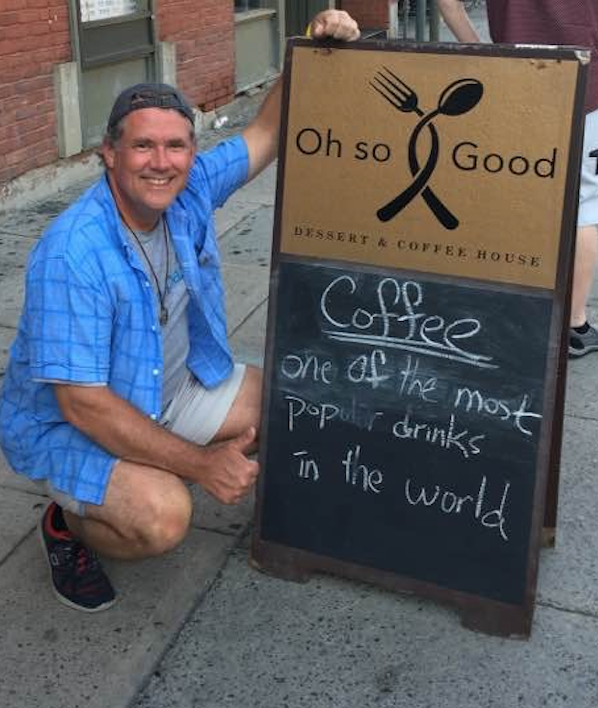 Oh so Good
DESSERT & COFFEE HOUSE
Coffee
one of the most
popular drinks
in the world